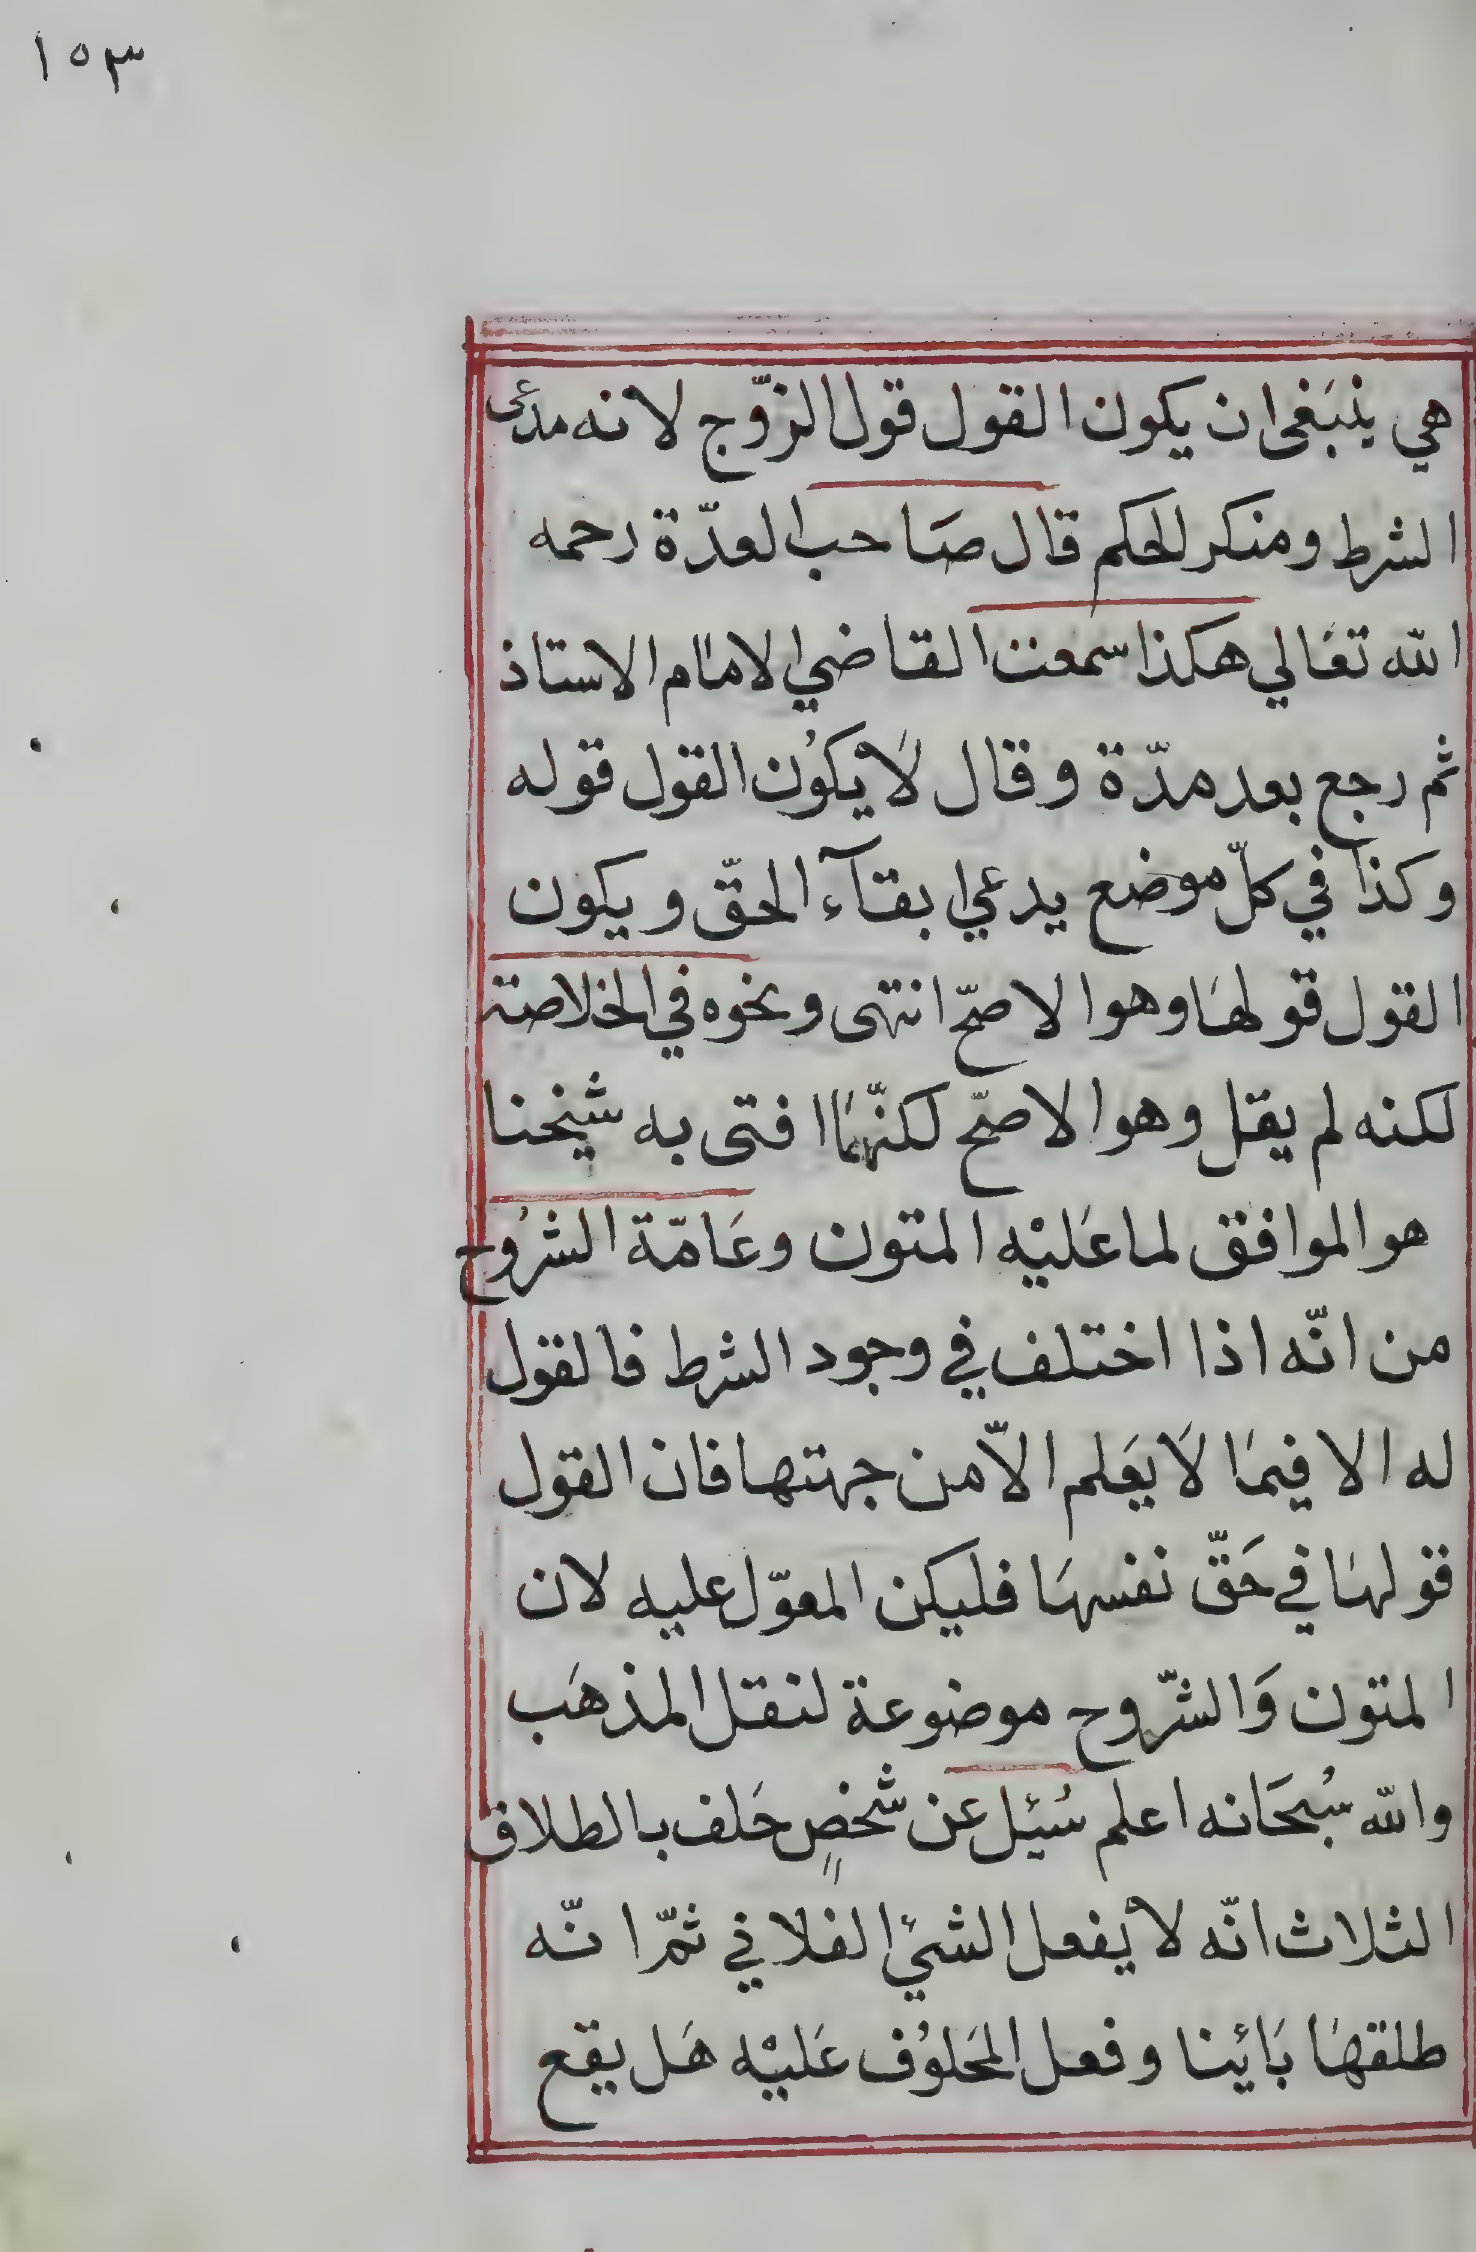 ١٥٣
هي ينبَغي ان يكون القول قول الزّوج لانه مدعى
الشرط ومنكر الحكم قال صَاحب العدّة رحمه
الله تعَالي هكذا سمعت القاضي الامام الاستاذ
ثم رجع بعد مدّة وقال لاَ يكوُن القول قوله
وكذا في كلّ موضع يدعي ابقآء الحقّ ويكون
القول قولهَا وهو الاصحّ انتهى ونحوه في الخلاصة
لكنه لم يقل وهو الاصحّ لكنّما افتى به شيخنا
هو الموافق لما عَليْه المتون وعَامّة الشرُوح
من انّه اذا اختلف في وجود الشرط فالقول
له الا فيمَا لاَ يعَلم الاّ من جهتها فان القول
قولهَا في حَقّ نفسهَا فليكن المعوّل عليه لان
المتون وَالشّروح موضوعة لنقل المذهَب
والله سُبحَانه اعلم سُئل عن شخصٍ حَلف بالطلاق
الثلاث انّه لاَ يفعل الشئ الفلاني ثمّ انّه
طلقهَا بَائنا وفعل المحَلوُف عَليْه هَل يقع